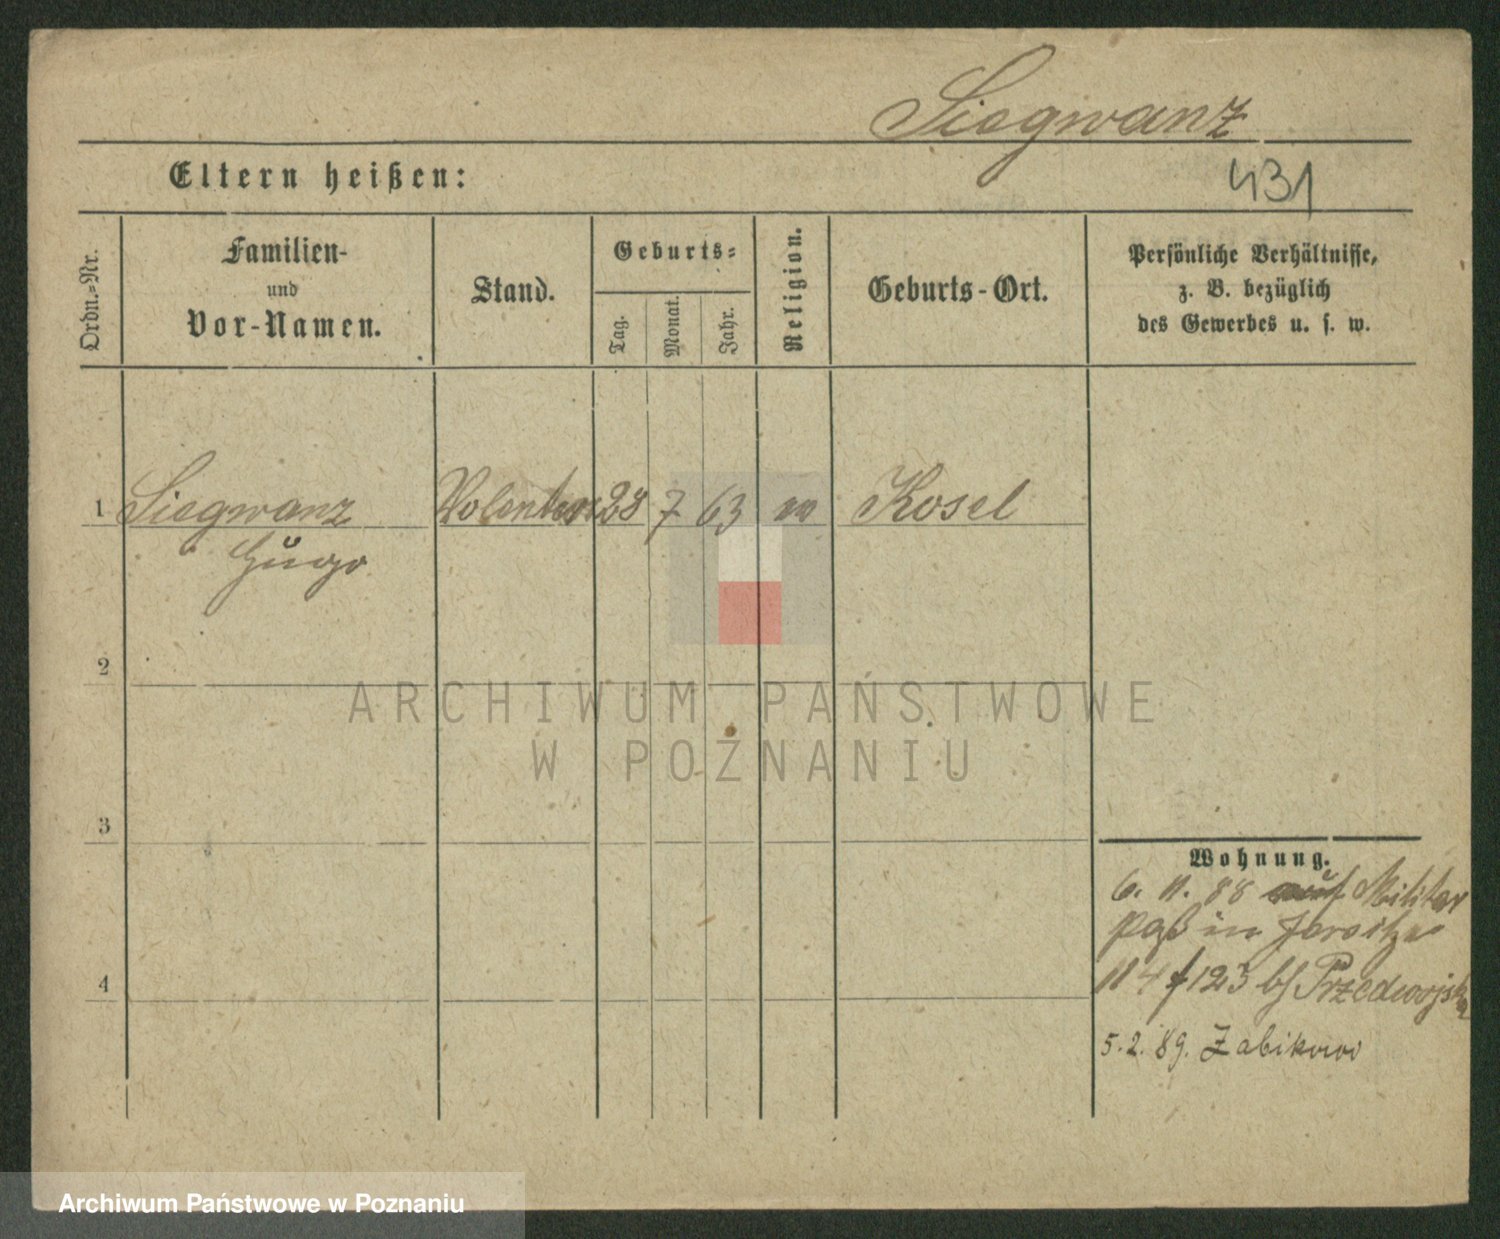 Siegwanz
431
Eltern heißen:
Ordn.-Nr.
Familien-
und
Vor-Namen.
Stand.
Geburts-
Tag.
Monat.
Jahr.
Religion.
Geburts-Ort.
Persönliche Verhältnisse,
z. B. bezüglich
des Gewerbes u. s. w.
1 Siegwanz 28 7 63 Kosel
Hugo
2
3
4
Wohnung.
6. 11. 88 auf Militar
paß in
123 bei
5. 2. 89. Zabikowo
ARCHIWUM PAŃSTWOWE
W POZNANIU
Archiwum Państwowe w Poznaniu